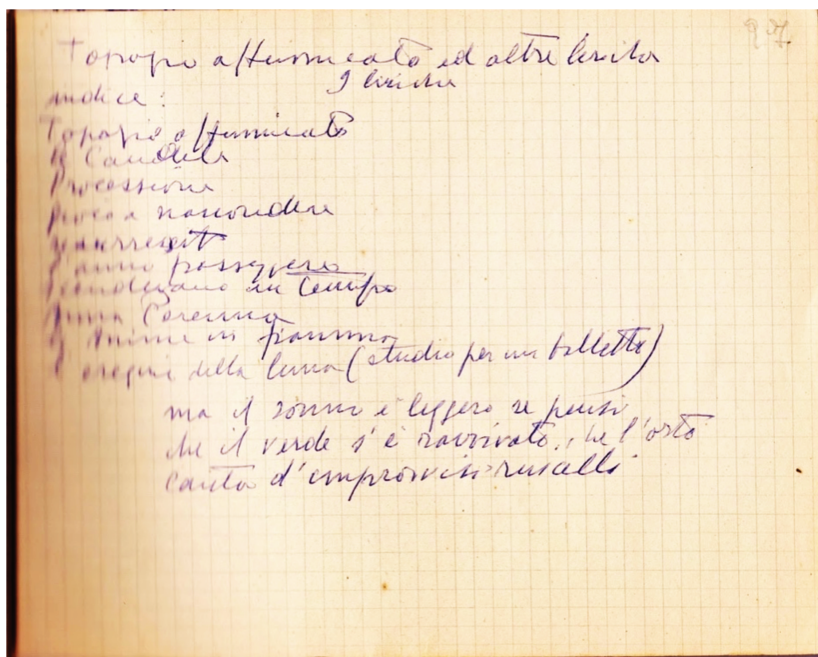 97
Topazio affumicato ed altre liriche
9 liriche
indice:
Topazio affumicato
le Candele
Processione
gioca a nascondere
resurrexit
L'anno passeggero
scendevano un tempo
Anna Perenna
Anime in fiamma
l'origine della luna (studio per un balletto)
ma il sonno è leggero se pensi
che il verde s'è ravvivato, che l'orto
canta d'improvvisi ruscelli